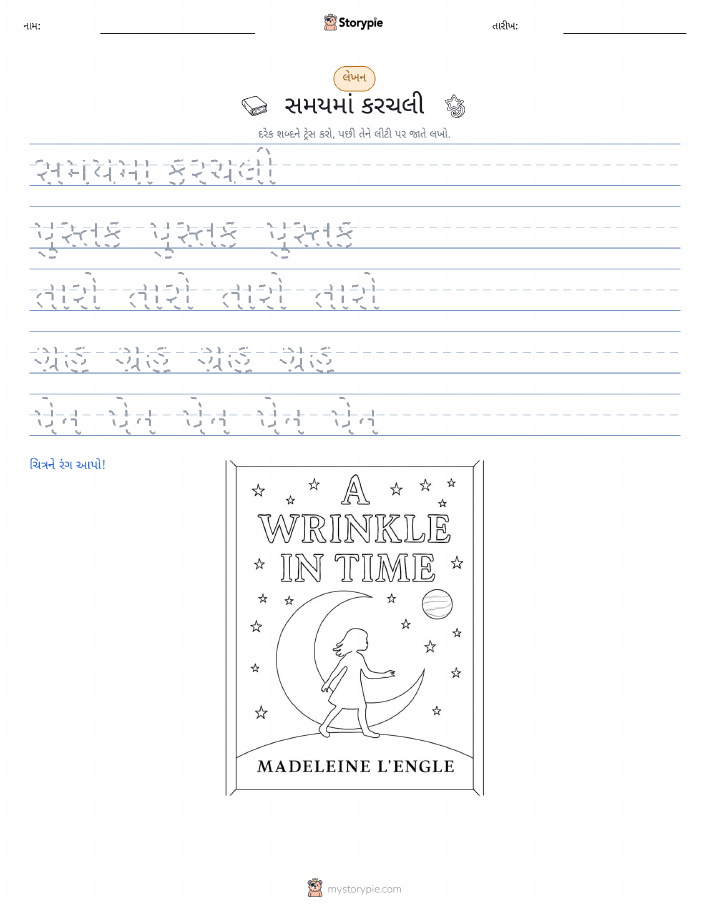 નામ:
Storypie
તારીખ:
લેખન
સમયમાં કરચલી
દરેક શબ્દને ટ્રેસ કરો, પછી તેને લીટી પર જાતે લખો.
સમયમા કરચલી
પુસ્તક પુસ્તક પુસ્તક
તારો તારો તારો તારો
ગ્રહ ગ્રહ ગ્રહ ગ્રહ
પેન પેન પેન પેન પેન
ચિત્રને રંગ આપો!
A
WRINKLE
IN TIME
MADELEINE L'ENGLE
mystorypie.com